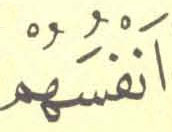 اَنْفُسَهُمْ